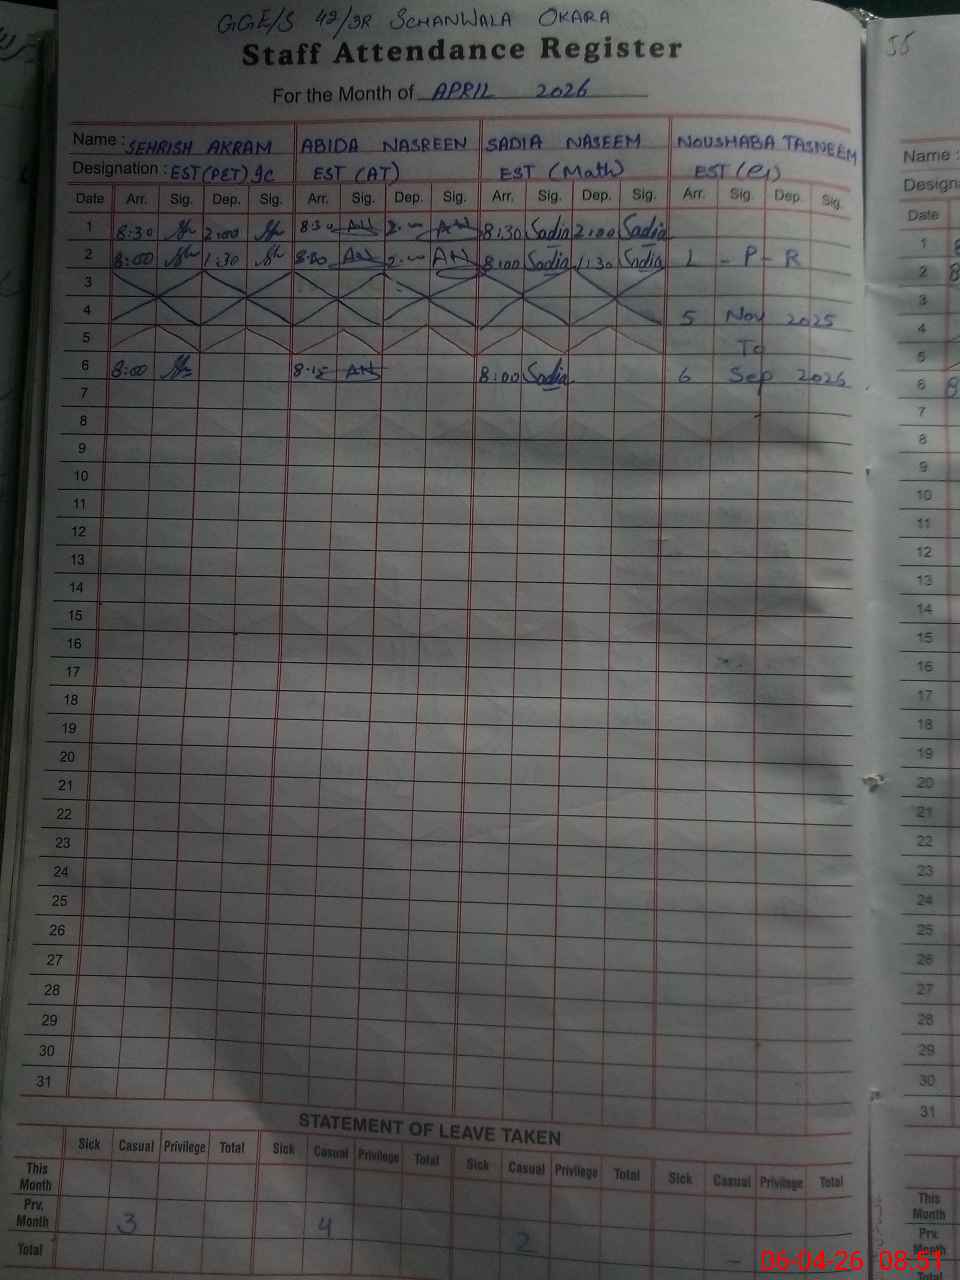 GGE/S 42/3R SCHANWALA OKARA
Staff Attendance Register
For the Month of APRIL 2026
Name : SEHRISH AKRAM ABIDA NASREEN SADIA NASEEM NOUSHABA TASNEEM
Designation : EST (PET) Ic EST (AT) EST (Math) EST
Date Arr. Sig. Dep. Sig. Arr. Sig. Dep. Sig. Arr. Sig. Dep. Sig. Arr. Sig. Dep. Sig.
1 8:30 2:00 8:30 AN 2:00 AN 8:30 Sadia 2:00 Sadia
2 8:00 1:30 8:00 AN 2:00 AN 8:00 Sadia 1:30 Sadia L - P - R
3
4 5 Nov 2025
5 To
6 8:00 8:15 AN 8:00 Sadia 6 Sep 2026
7
8
9
10
11
12
13
14
15
16
17
18
19
20
21
22
23
24
25
26
27
28
29
30
31
STATEMENT OF LEAVE TAKEN
Sick Casual Privilege Total Sick Casual Privilege Total Sick Casual Privilege Total Sick Casual Privilege Total
This Month
Prv. Month 3 4 2
Total
55
Name :
Date
1
2
3
4
5
6
7
8
9
10
11
12
13
14
15
16
17
18
19
20
21
22
23
24
25
26
27
28
29
30
31
This Month
Prv. Month
Total
06-04-26 08:51